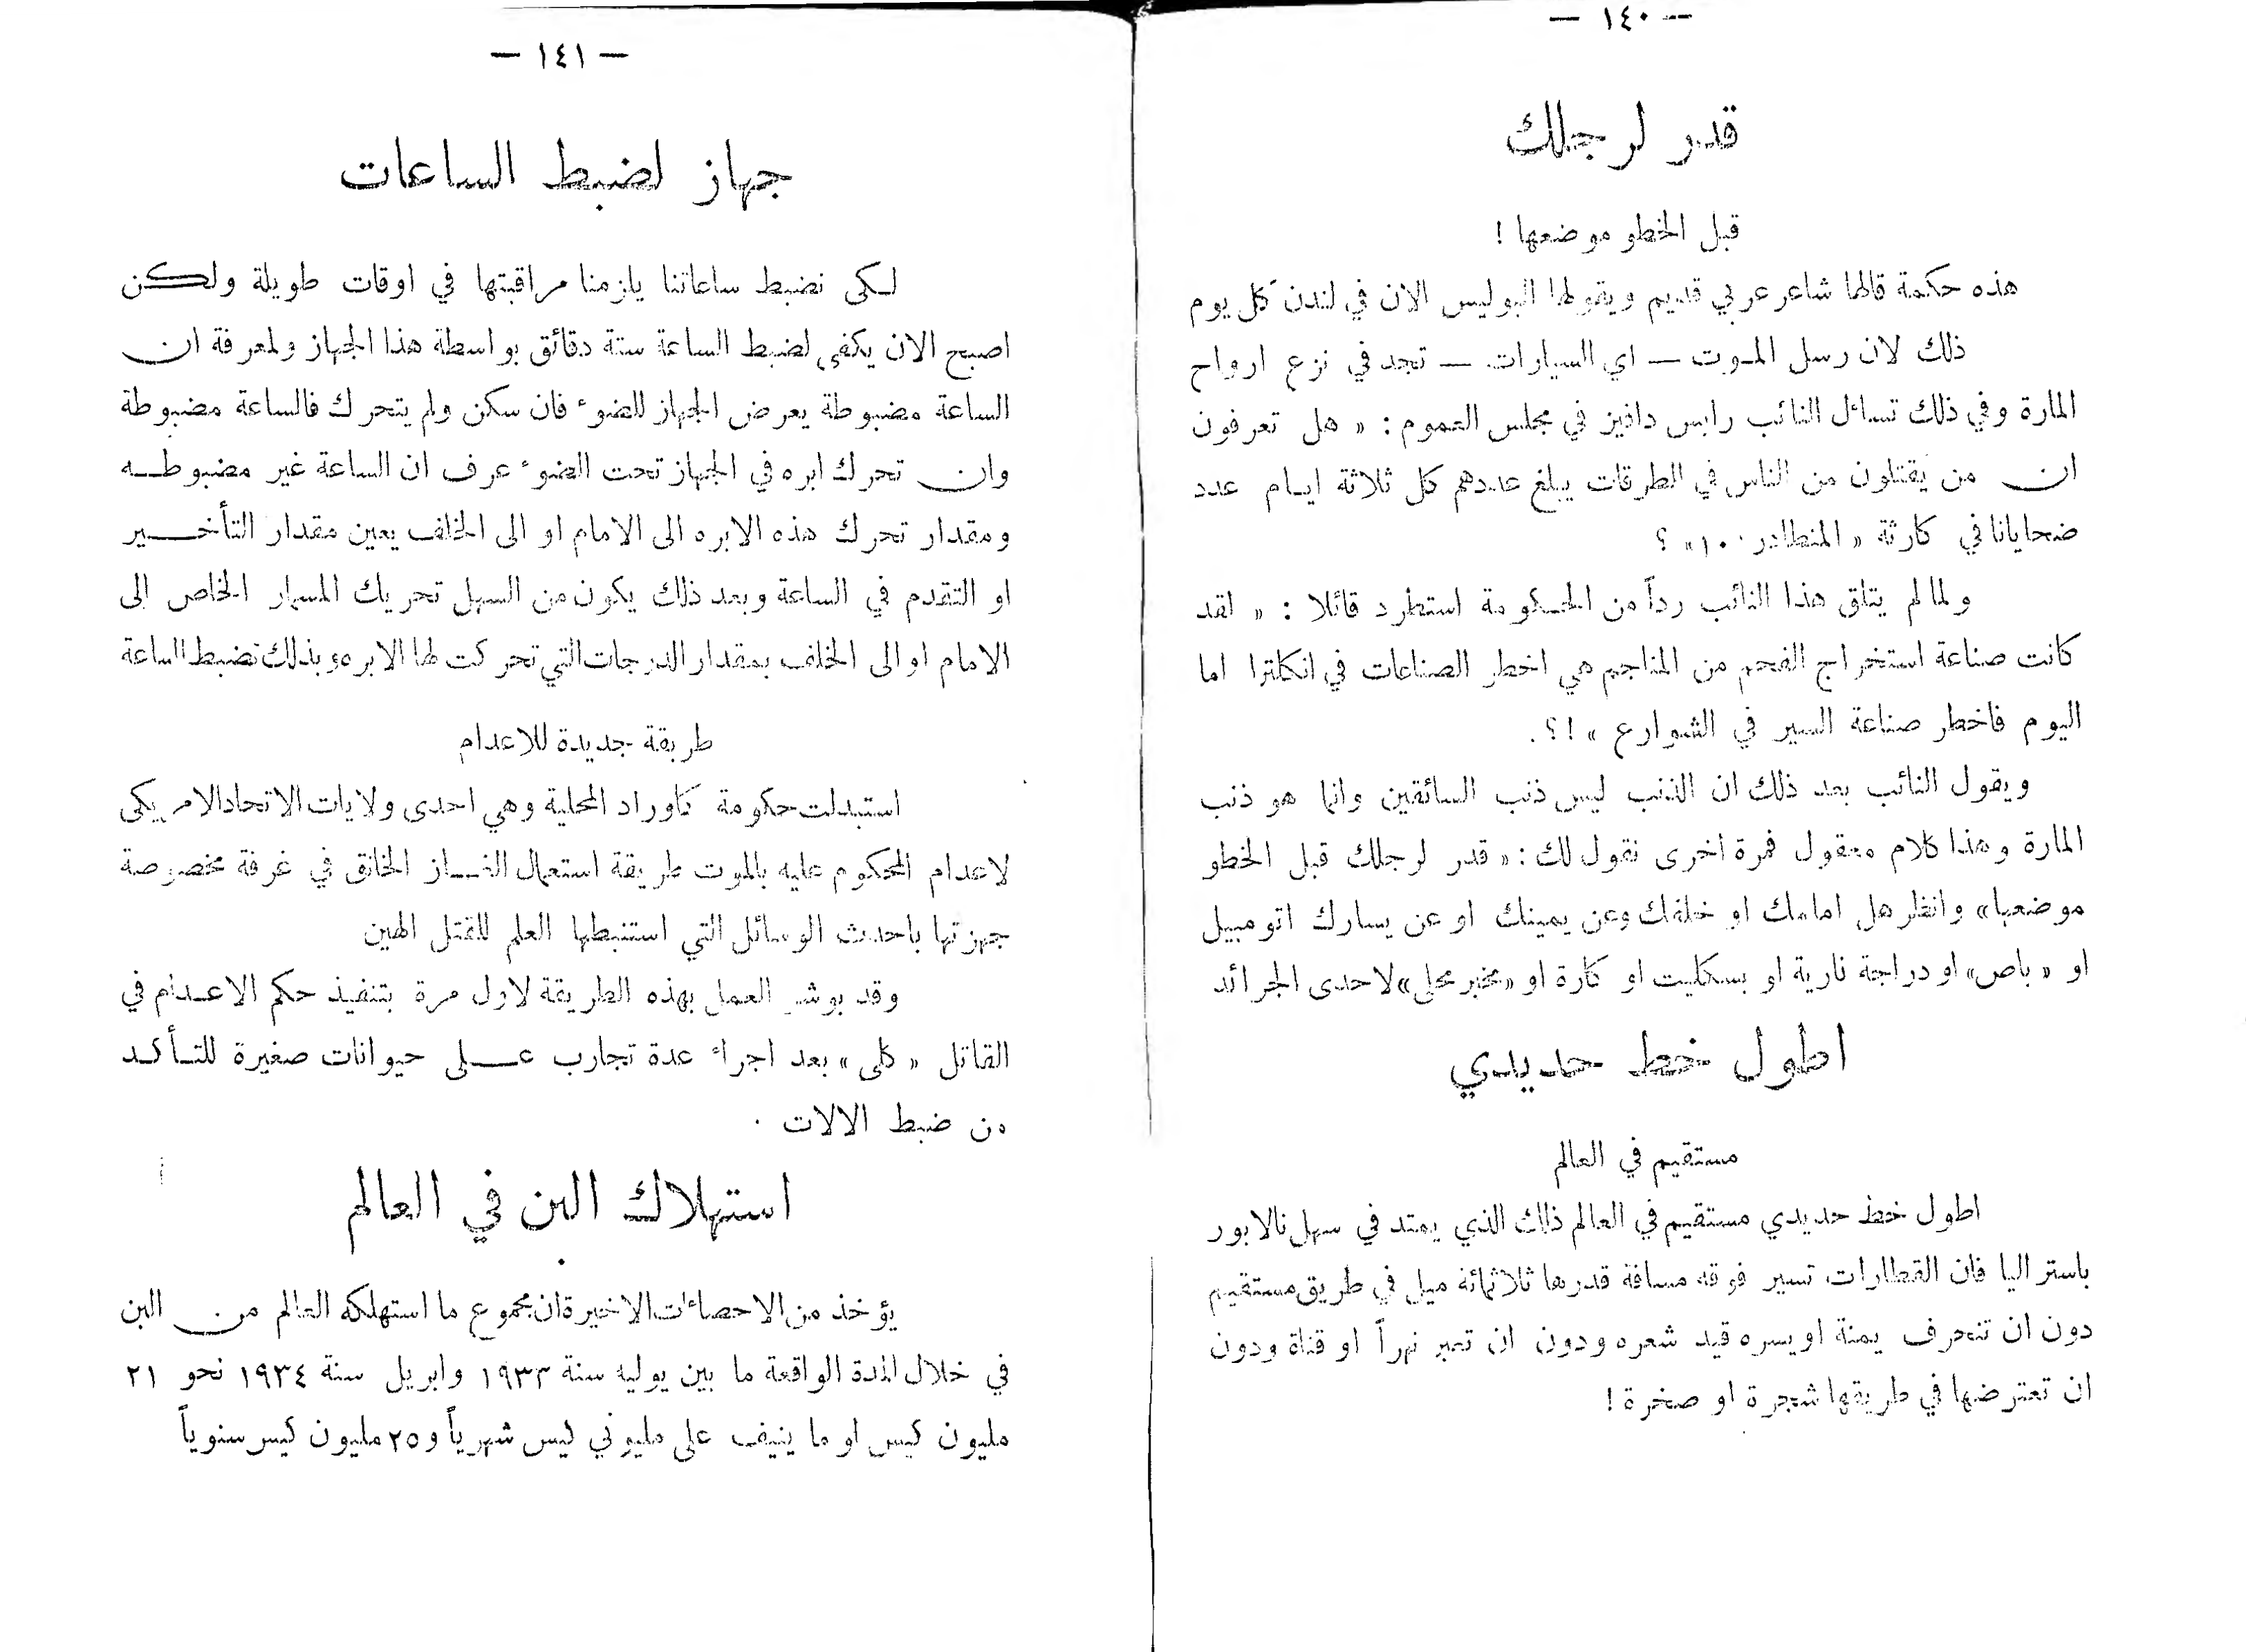 — ١٤٠ —
قدر لرجلك
قبل الخطو موضعها !
هذه حكمة قالها شاعر عربي قديم ويقولها البوليس الان في لندن كل يوم
ذلك لان رسل المـوت — اي السيارات — تجد في نزع ارواح
المارة وفي ذلك تسائل النائب رايس دافيز في مجلس العموم : « هل تعرفون
ان من يقتلون من الناس في الطرقات يبلغ عددهم كل ثلاثة ايـام عدد
ضحايانا في كارثة « المنطادر ١٠٠» ؟
ولما لم يتلق هذا النائب رداً من الحـكومة استطرد قائلا : « لقد
كانت صناعة استخراج الفحم من المناجم هي اخطر الصناعات في انكلترا اما
اليوم فاخطر صناعة السير في الشوارع » !؟ .
ويقول النائب بعد ذلك ان الذنب ليس ذنب السائقين وانما هو ذنب
المارة وهذا كلام معقول فمرة اخرى نقول لك : « قدر لرجلك قبل الخطو
موضعها» وانظر هل امامك او خلفك وعن يمينك او عن يسارك اتومبيل
او « باص» او دراجة نارية او بسكليت او كارة او «مخبر محلي» لاحدى الجرائد
اطول خط حديدي
مستقيم في العالم
اطول خط حديدي مستقيم في العالم ذلك الذي يمتد في سهل نالابور
باستراليا فان القطارات تسير فوقه مسافة قدرها ثلاثمائة ميل في طريق مستقيم
دون ان تنحرف يمنة او يسره قيد شعره ودون ان تعبر نهراً او قناة ودون
ان تعترضها في طريقها شجرة او صخرة !
— ١٤١ —
جهاز لضبط الساعات
لـكى نضبط ساعاتنا يلزمنا مراقبتها في اوقات طويلة ولـكن
اصبح الان يكفى لضبط الساعة ستة دقائق بواسطة هذا الجهاز ولمعرفة ان
الساعة مضبوطة يعرض الجهاز للضوء فان سكن ولم يتحرك فالساعة مضبوطة
وان تحرك ابره في الجهاز تحت الضوء عرف ان الساعة غير مضبوطـه
ومقدار تحرك هذه الابره الى الامام او الى الخلف يعين مقدار التأخـير
او التقدم في الساعة وبعد ذلك يكون من السهل تحريك المسمار الخاص الى
الامام او الى الخلف بمقدار الدرجات التي تحركت لها الابره وبذلك تضبط الساعة
طريقة جديدة للاعدام
استبدلت حكومة كاوراد المحلية وهي احدى ولايات الاتحاد الامريكى
لاعدام المحكوم عليه بالموت طريقة استعمال الغـاز الخانق في غرفة مخصوصة
جهزتها باحدث الوسائل التي استنبطها العلم للقتل الهين
وقد بوشر العمل بهذه الطريقة لاول مرة بتنفيـذ حكم الاعـدام في
القاتل « كلى » بعد اجراء عدة تجارب عـلى حيوانات صغيرة للتـأكـد
من ضبط الالات ٠
استهلاك البن في العالم
يؤخذ من الاحصاءات الاخيرة ان مجموع ما استهلكه العالم من البن
في خلال المدة الواقعة ما بين يوليه سنة ١٩٣٣ وابريل سنة ١٩٣٤ نحو ٢١
مليون كيس او ما ينيف على مليوني كيس شهرياً و٢٥ مليون كيس سنوياً